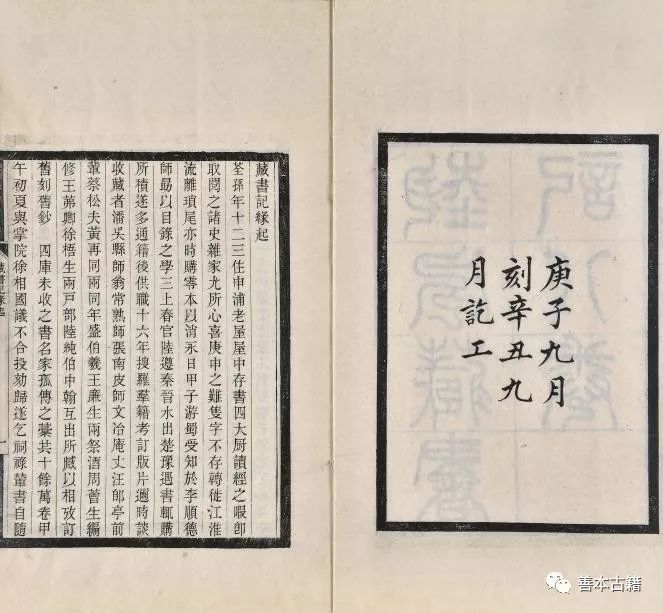 庚子九月
刻辛丑九
月訖工
藏書記緣起
荃孫年十二三住申浦老屋屋中存書四大厨讀經之暇卽
取閱之諸史雜家尤所心喜庚申之難隻字不存轉徙江淮
流離瑣尾亦時購零本以消永日甲子游蜀受知於李順德
師勗以目錄之學三上春官陸遵秦晉水出楚豫遇書輒購
所積遂多通籍後供職十六年搜羅羣籍考訂版片邇時談
收藏者潘吳縣師翁常熟師張南皮師文冶庵丈汪郎亭前
輩蔡松夫黃再同兩同年盛伯羲王廉生兩祭酒周薈生編
修王茀卿徐梧生兩戶部陸純伯中翰互出所藏以相攷訂
舊刻舊鈔 四庫未收之書名家孤傳之藁共十餘萬卷甲
午初夏與掌院徐相國議不合投劾歸遂乞祠祿輦書自隨
藏書記緣起
善本古籍